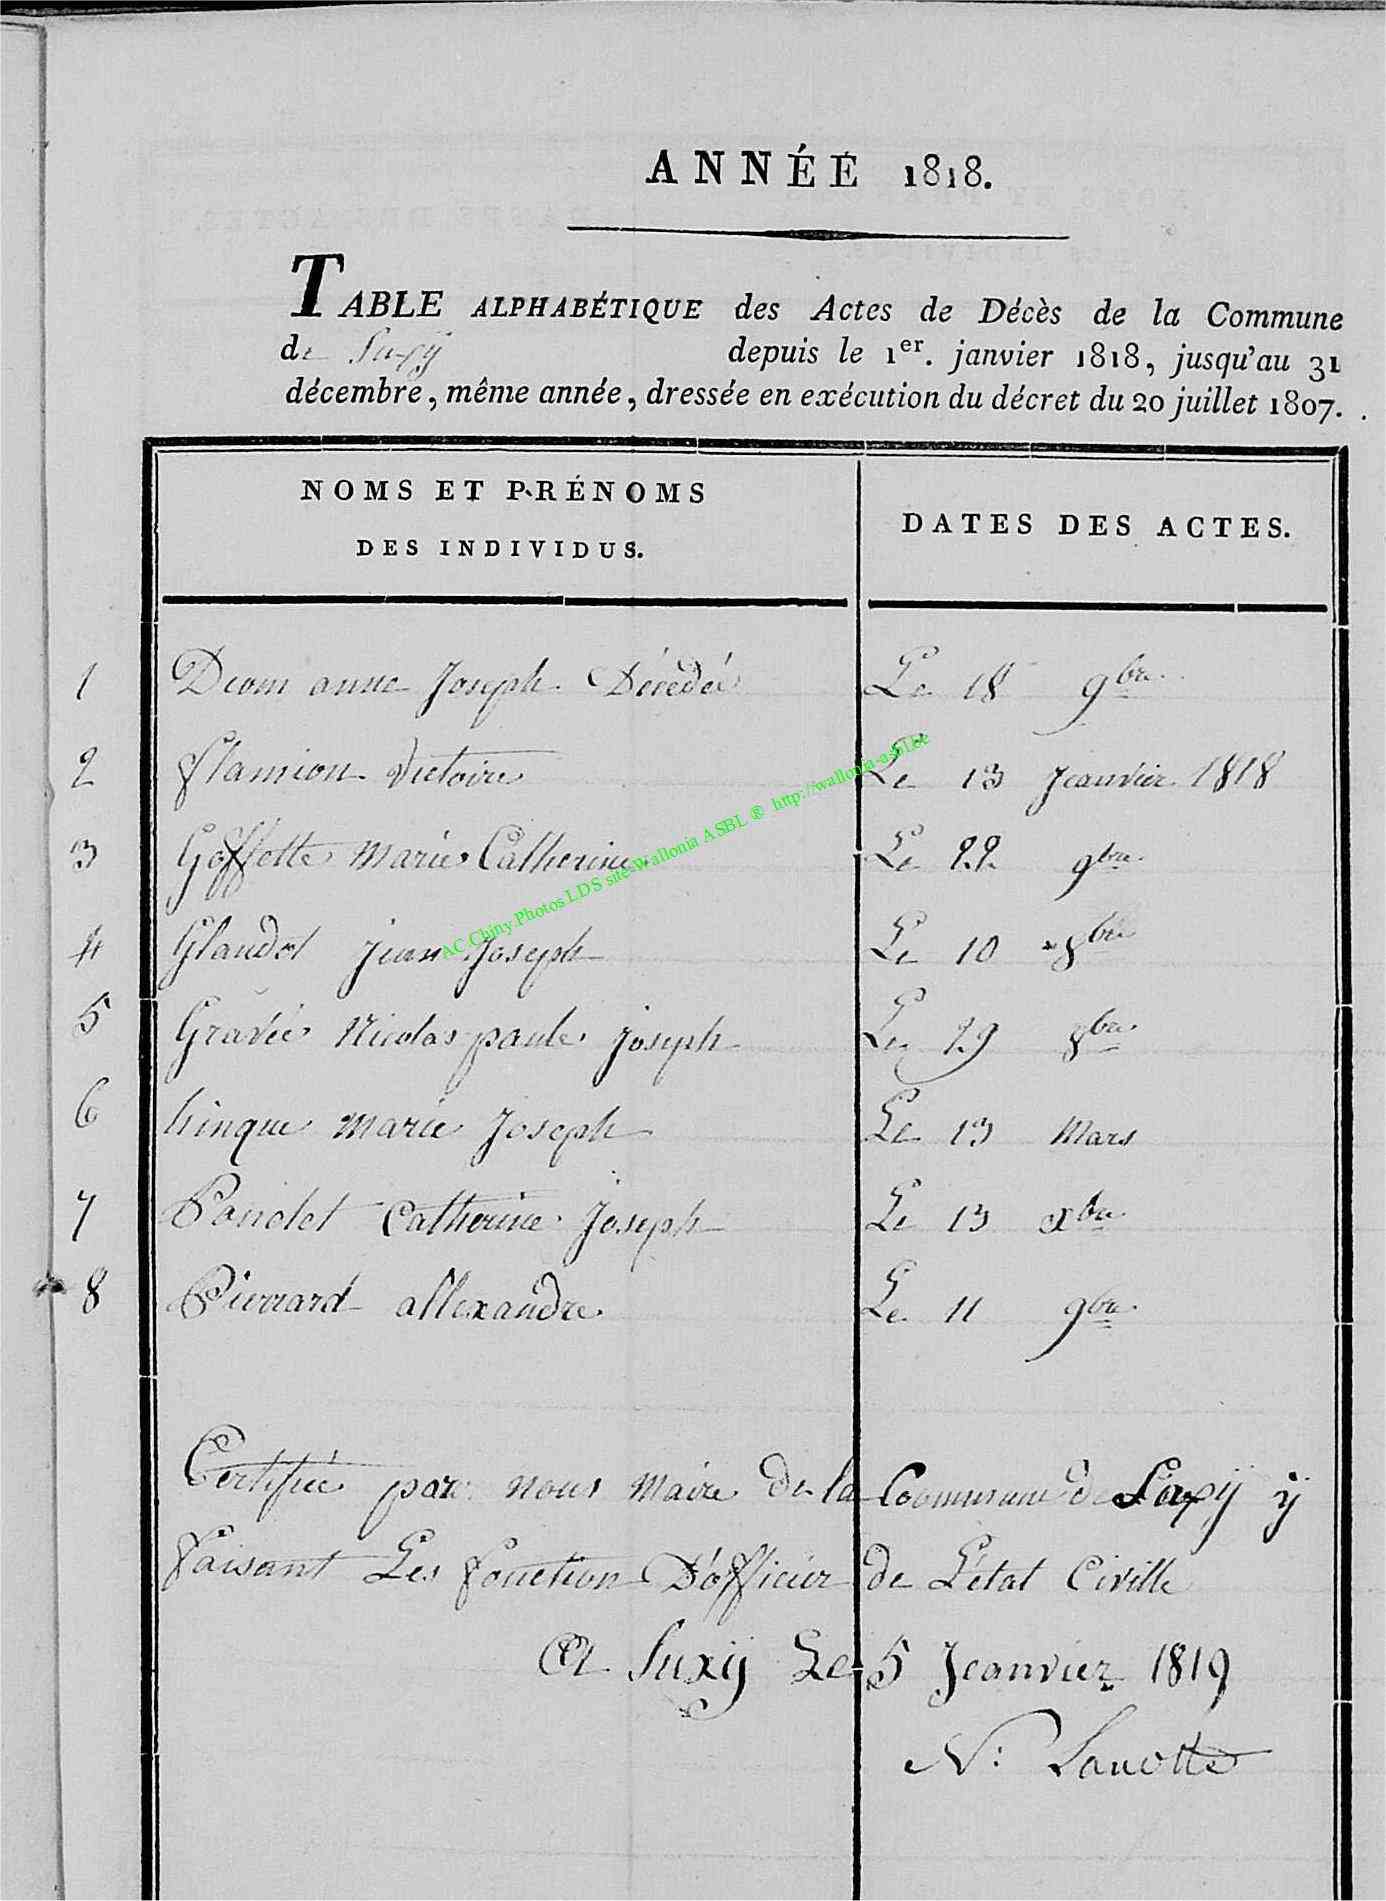 ANNÉE 1818.
TABLE ALPHABÉTIQUE des Actes de Décès de la Commune
de Suxÿ depuis le 1er. janvier 1818, jusqu'au 31
décembre, même année, dressée en exécution du décret du 20 juillet 1807.
NOMS ET PRÉNOMS
DES INDIVIDUS.
DATES DES ACTES.
1 Deom anne Joseph Décédée Le 18 9bre
2 flamion Victoire Le 13 Jeanvier 1818
3 Goffette Marie Catherine Le 22 9bre
4 Glaudot jean Joseph Le 10 8bre
5 Gravée Nicolas paule joseph Le 29 8bre
6 hinque marie Joseph Le 13 Mars
7 Poncelet Catherine Joseph Le 13 xbre
8 Pierrard allexandre Le 11 9bre
Certifiée par nous Maire De la Commune de Suxÿ ÿ
faisant Les fonction D'officier de L'état Civille
A Suxÿ Le 5 Jeanvier 1819
N: Lanotte
AC Chiny.Photos LDS site-Wallonia ASBL ® http://wallonia-asbl.be